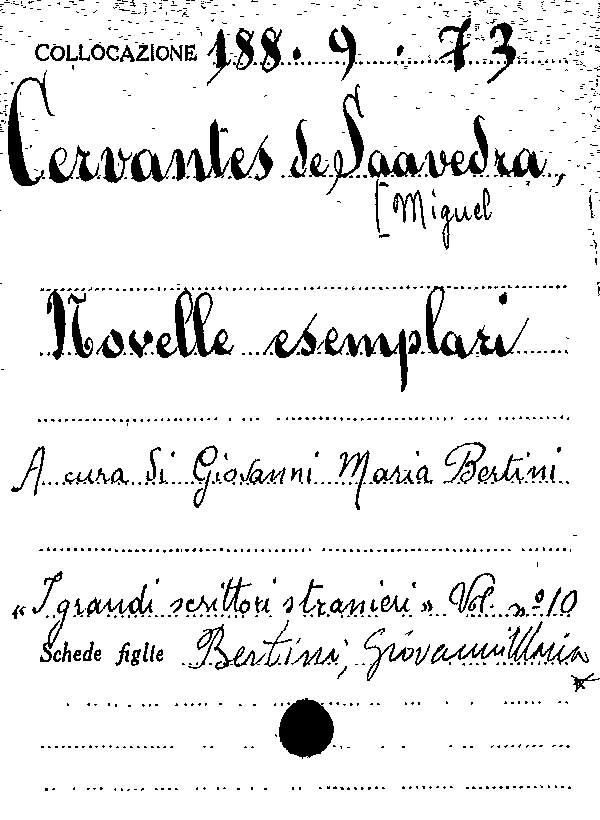 COLLOCAZIONE 188. 9. 73
Cervantes de Saavedra,
[Miguel
Novelle esemplari
A cura di Giovanni Maria Bertini
«I grandi scrittori stranieri» Vol. nº 10
Schede figlie Bertini, Giovanni Maria